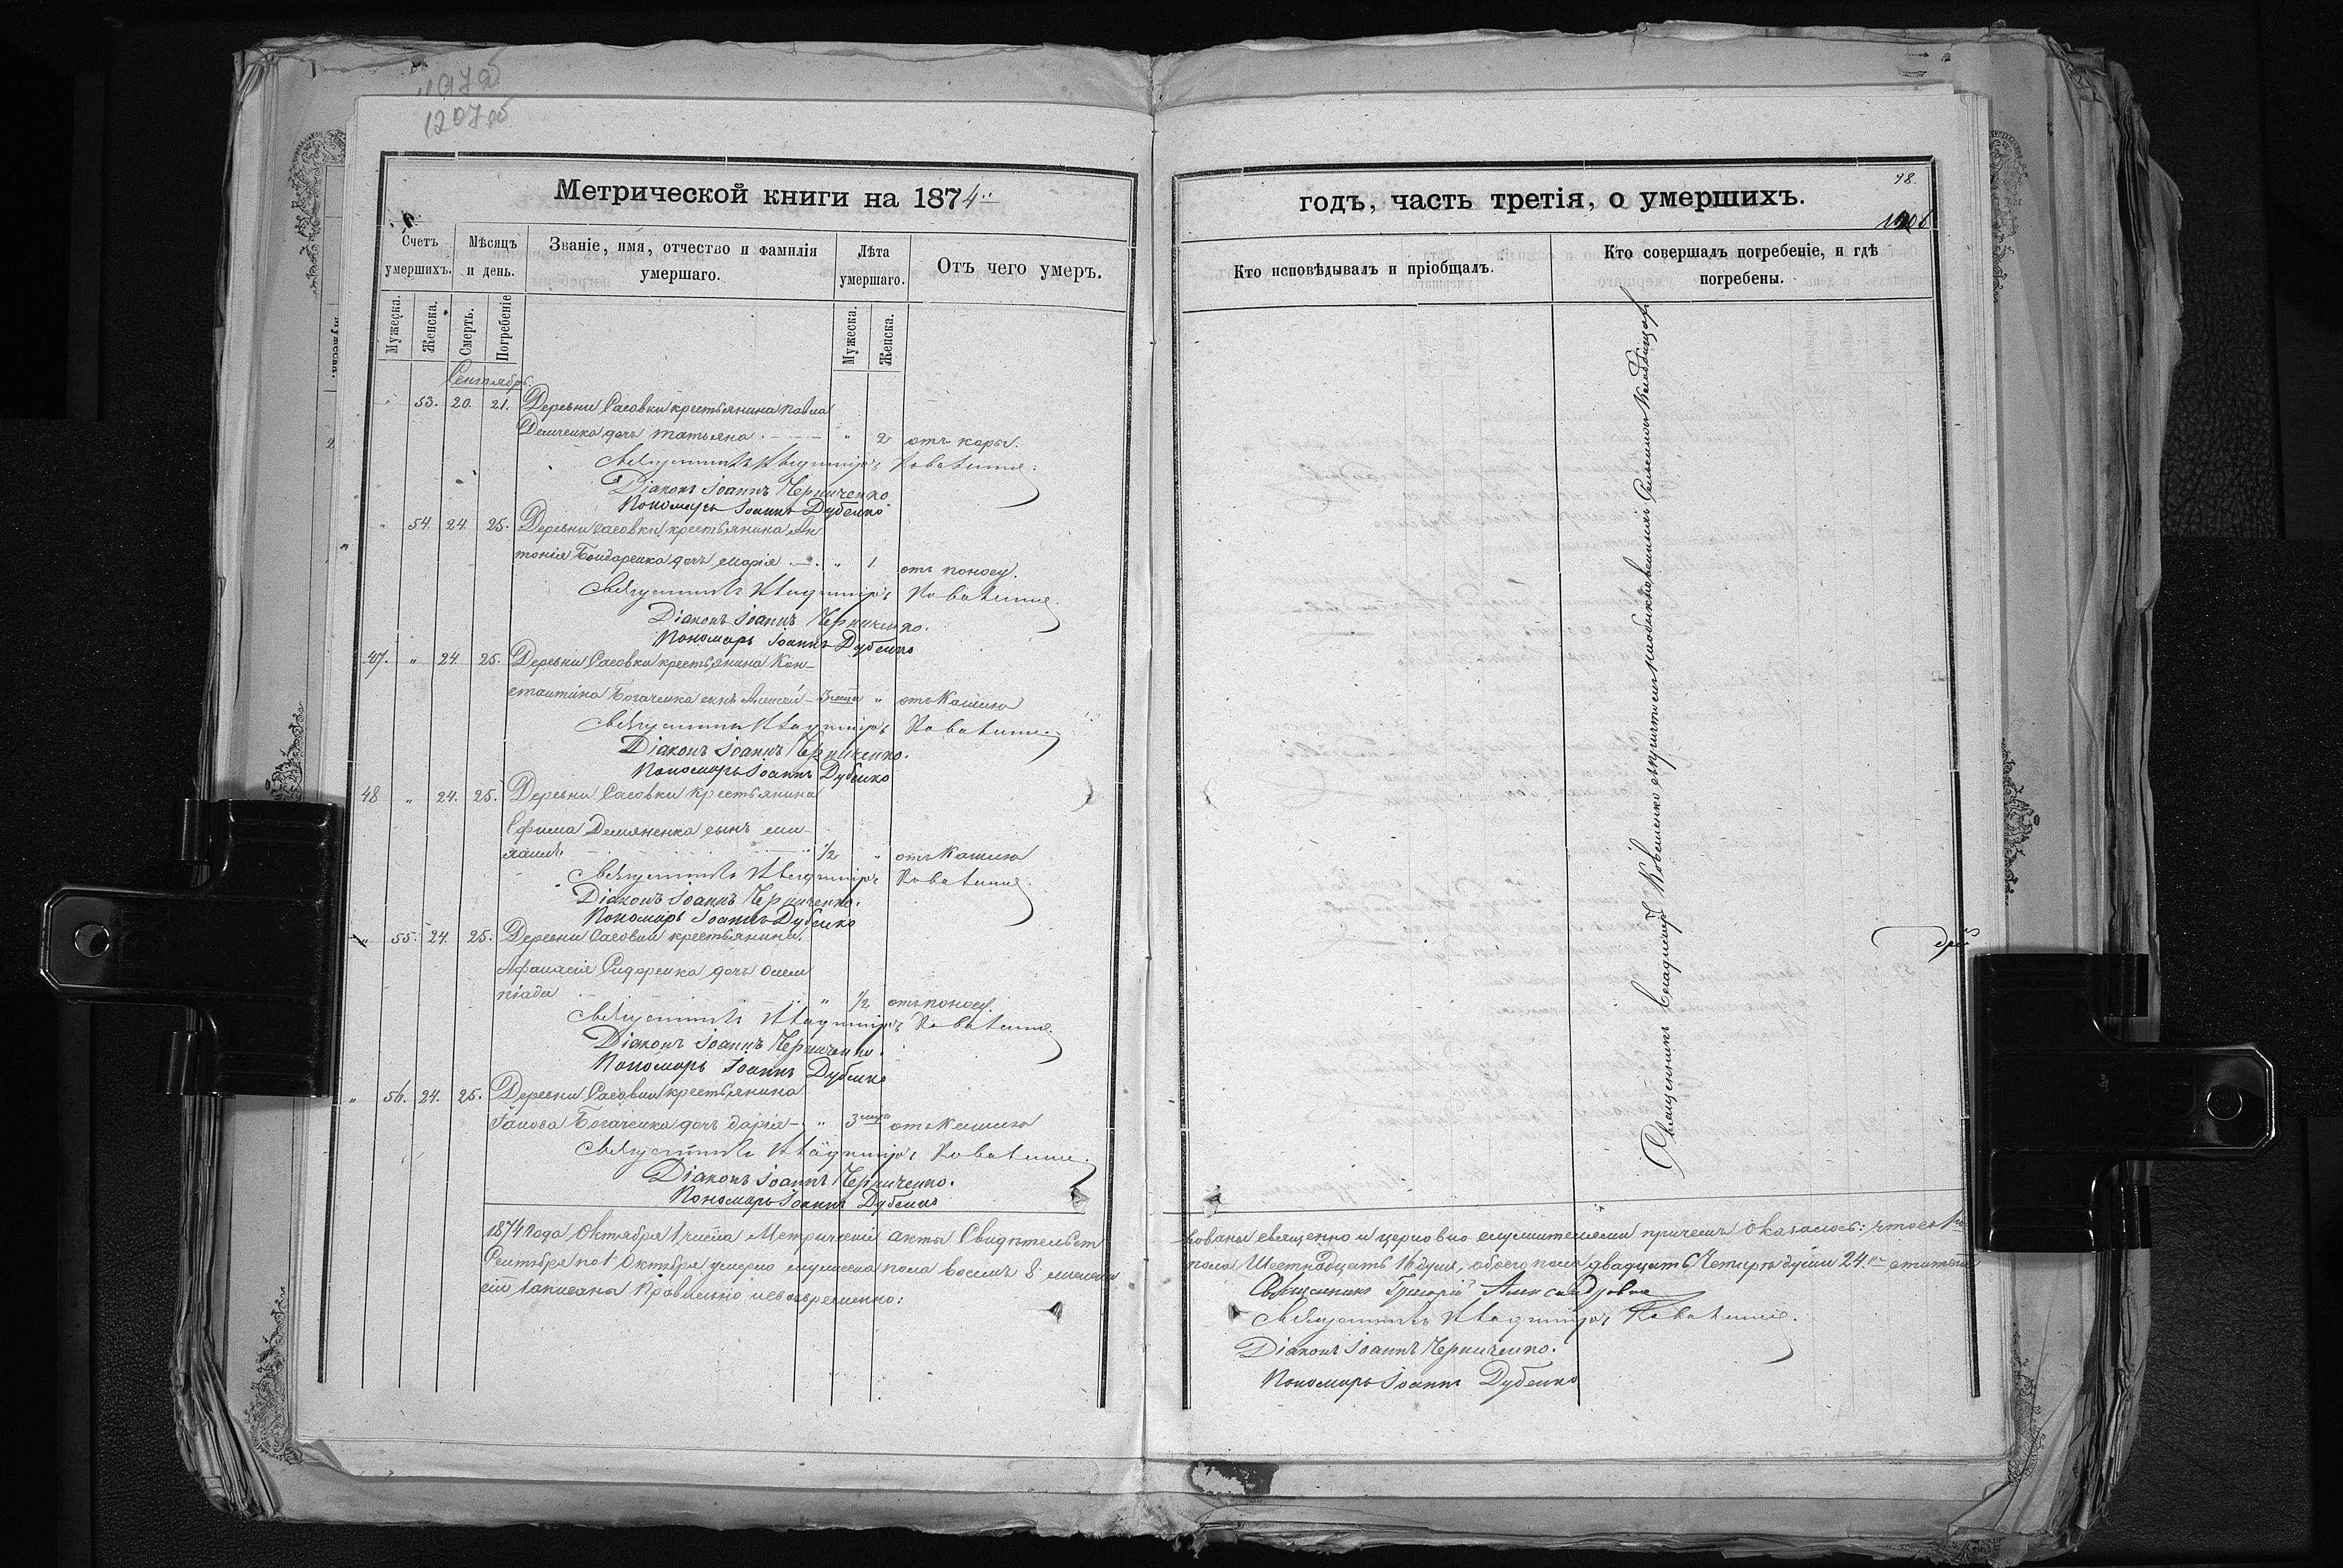 1207об
Метрической книги на 1874й
Счетъ умершихъ.
Мѣсяцъ и день.
Званіе, имя, отчество и фамилія умершаго.
Лѣта умершаго.
Отъ чего умеръ.
Мужеска.
Женска.
Смерть.
Погребеніе
Мужеска.
Женска.
Сентябрь.
" 53. 20. 21. Деревни Сасовки крестьянина Павла
Демченка дочь Татьяна " 2 отъ кори.
Священникъ Владиміръ
Діаконъ Іоаннъ Черниченко
Пономарь Іоаннъ Дубенко
" 54. 24. 25. Деревни Сасовки крестьянина Ан
тонія Бондаренка дочь Марія " 1 отъ поносу.
Священникъ Владиміръ
Діаконъ Іоаннъ Черниченко.
Пономарь Іоаннъ Дубенко
47. " 24. 25. Деревни Сасовки крестьянина Кон-
стантина Богаченка сынъ Алексѣй - 3 " отъ Кашлю
Священникъ Владиміръ
Діаконъ Іоаннъ Черниченко.
Пономарь Іоаннъ Дубенко
48 " 24. 25. Деревни Сасовки крестьянина
Ефима Демяненка сынъ ми-
хаилъ 1/2 " отъ Кашлю
Священникъ Владиміръ
Діаконъ Іоаннъ Черниченко.
Пономарь Іоаннъ Дубенко
" 55. 24. 25. Деревни Сасовки крестьянина
Афанасія Сидоренка дочь Олим
піада " 1/2 отъ поносу.
Священникъ Владиміръ
Діаконъ Іоаннъ Черниченко.
Пономарь Іоаннъ Дубенко
" 56. 24. 25. Деревни Сасовки крестьянина
Іакова Богаченка дочь Дарія - " 3 отъ Кашлю
Священникъ Владиміръ
Діаконъ Іоаннъ Черниченко.
Пономарь Іоаннъ Дубенко
1874 года Октября 1 числа Метрическіе акты Свидѣтельст
Сентября по 1 Октября умерло мужеска пола восемъ 8 женска
записаны Правильно
98.
годъ, часть третія, о умершихъ.
Кто исповѣдывалъ и пріобщалъ.
Кто совершалъ погребеніе, и гдѣ погребены.
Священникъ Владимиръ
вованы священно и церковно служителями причемъ оказалось: что съ 1го
пола Шестнадцать 16 душъ, обоего пола двадцать Четыре души 24.
Священникъ Григорій Александровъ
Священникъ Владиміръ
Діаконъ Іоаннъ Черниченко.
Пономарь Іоаннъ Дубенко